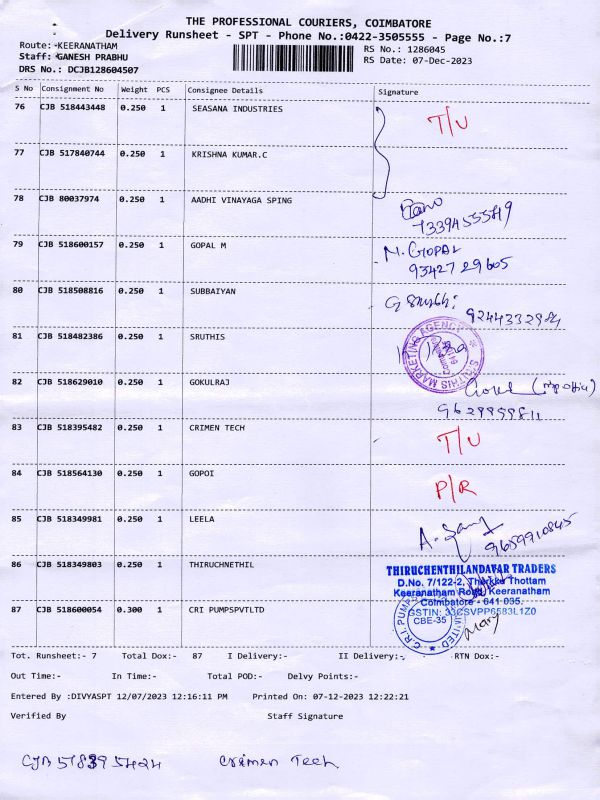 THE PROFESSIONAL COURIERS, COIMBATORE
Delivery Runsheet - SPT - Phone No.:0422-3505555 - Page No.:7
Route: -KEERANATHAM RS No.: 1286045
Staff: GANESH PRABHU RS Date: 07-Dec-2023
DRS No.: DCJB128604507
S No Consignment No Weight PCS Consignee Details Signature
76 CJB 518443448 0.250 1 SEASANA INDUSTRIES T/U
77 CJB 517840744 0.250 1 KRISHNA KUMAR.C
78 CJB 80037974 0.250 1 AADHI VINAYAGA SPING
79 CJB 518600157 0.250 1 GOPAL M N. GOPAL
93427 29605
80 CJB 518508816 0.250 1 SUBBAIYAN
81 CJB 518482386 0.250 1 SRUTHIS
SRUTHIS MARKETING AGENCY
82 CJB 518629010 0.250 1 GOKULRAJ
83 CJB 518395482 0.250 1 CRIMEN TECH T/U
84 CJB 518564130 0.250 1 GOPOI P/R
85 CJB 518349981 0.250 1 LEELA
9659910845
86 CJB 518349983 0.250 1 THIRUCHNETHIL
THIRUCHENTHILANDAVAR TRADERS
D.No. 7/122-2, Tharkka Thottam
Keeranatham Road, Keeranatham
Coimbatore - 641 035.
GSTIN: 33CSVPP6583L1Z0
87 CJB 518600054 0.300 1 CRI PUMPSPVTLTD
CBE-35
Mary
Tot. Runsheet:- 7 Total Dox:- 87 I Delivery:- II Delivery:- RTN Dox:-
Out Time:- In Time:- Total POD:- Delvy Points:-
Entered By :DIVYASPT 12/07/2023 12:16:11 PM Printed On: 07-12-2023 12:22:21
Verified By Staff Signature
CJB 518395424 Crimen Tech